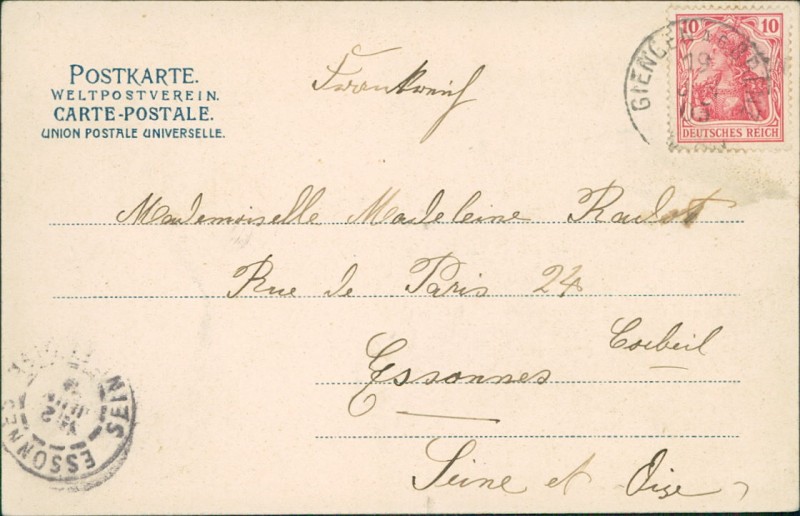 POSTKARTE.
WELTPOSTVEREIN.
CARTE-POSTALE.
UNION POSTALE UNIVERSELLE.
Frankreich
10 10
DEUTSCHES REICH
GIENGEN
Mademoiselle Madeleine
Rue de Paris 24
Corbeil
Essonnes
Seine et Oise
ESSONNES SEINE